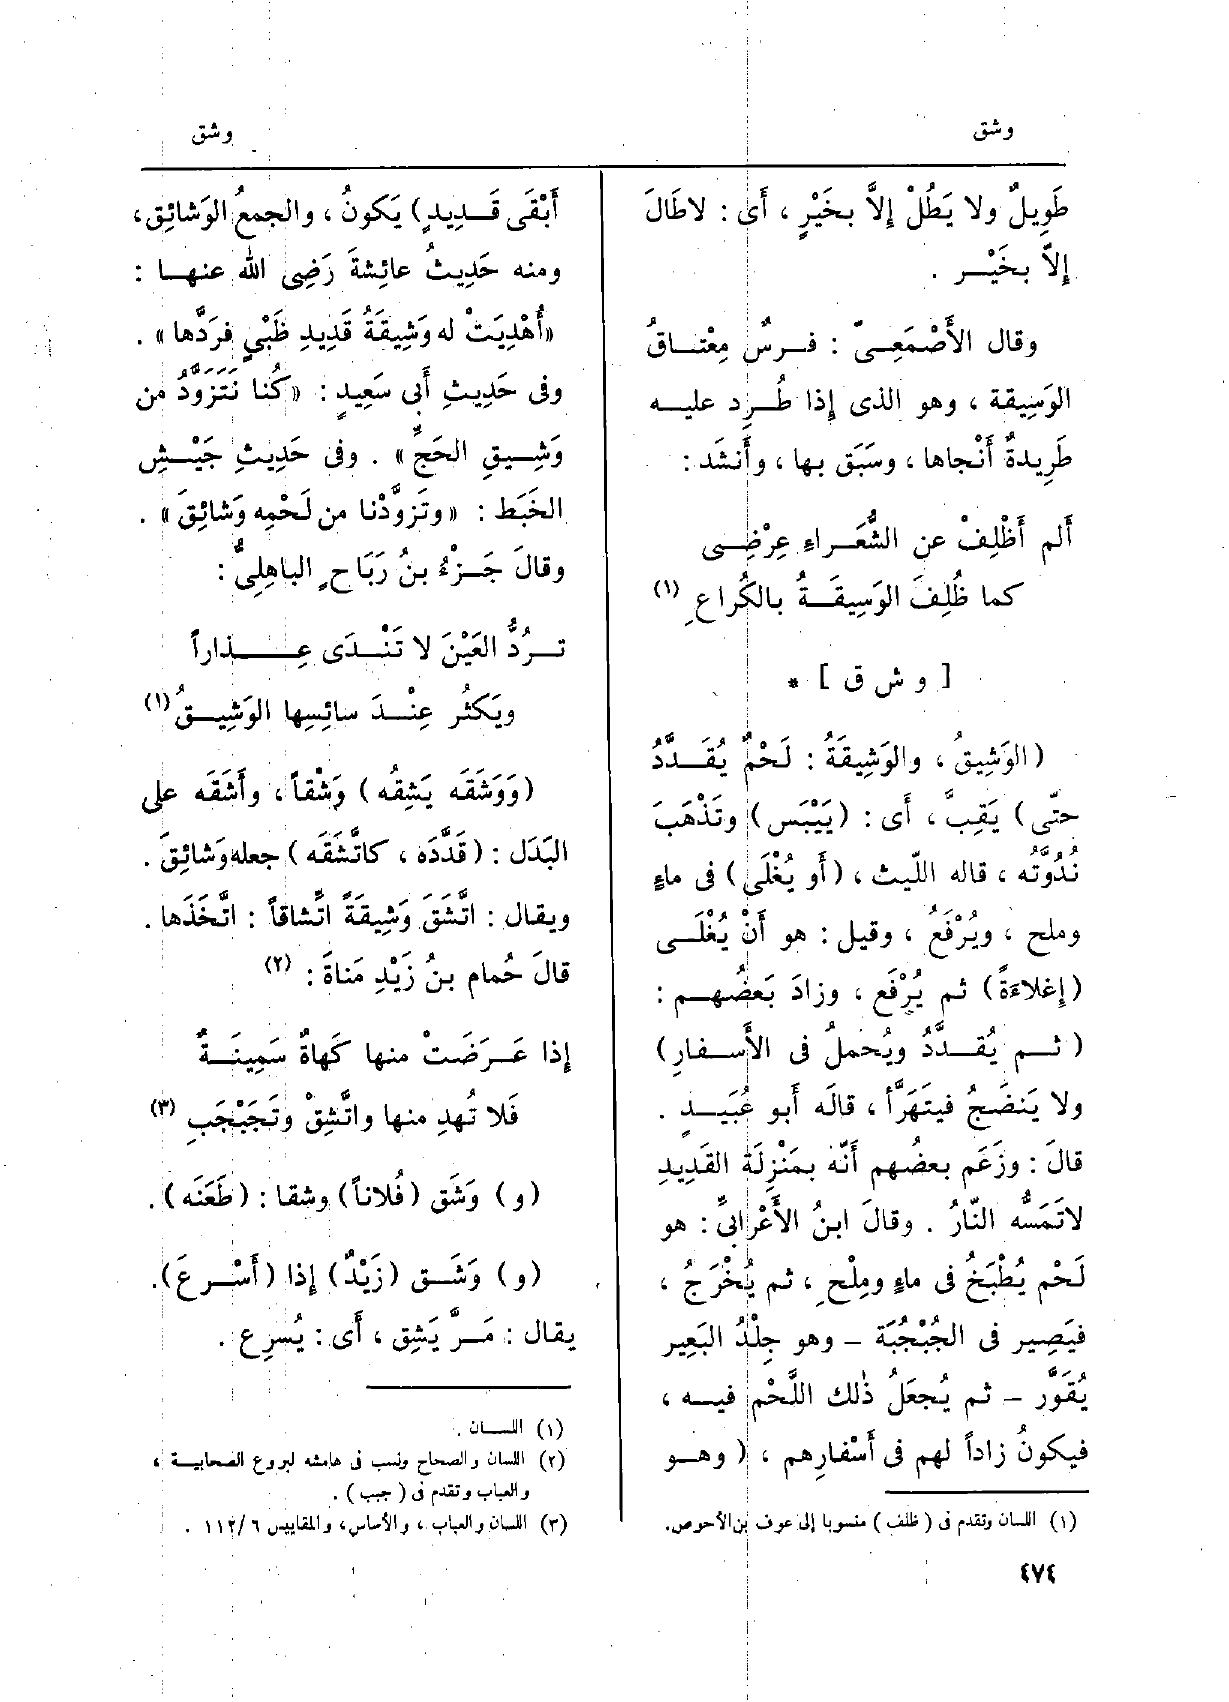 وشق
وشق
طَوِيلٌ ولا يَطُلْ إِلاَّ بخَيْرٍ ، أَى : لاطَالَ
إِلاَّ بخَيْـر .
وقال الأَصْمَعِـىّ : فـرسٌ مِعْتـاقُ
الوَسِيقة ، وهو الذى إِذا طُـرِد عليـه
طَرِيدةٌ أَنْجاها ، وسَبَق بها ، وأَنشَد :
أَلم أَظْلِفْ عن الشُّعَـراءِ عِرْضِـى
كما ظُلِفَ الوَسِيقَـةُ بالكُراعِ (١)
[ و ش ق ] *
(الوَشِيقُ ، والوَشِيقَةُ : لَحْمٌ يُقَـدَّدُ
حتّى) يَقِبَّ ، أَى : (يَيْبَس) وتَذْهَبَ
نُدُوَّتُه ، قاله اللّيث ، (أَو يُغْلَى) فى ماءٍ
وملح ، ويُرْفَعُ ، وقيل : هو أَنْ يُغْلَـى
(إِغلاءَةً) ثم يُرْفَع ، وزادَ بَعضُهـم :
( ثـم يُقـدَّدُ ويُحملُ فى الأَسـفارِ)
ولا يَنضَجُ فيتَهَرَّأ ، قالَه أَبو عُبَيـدٍ .
قالَ : وزَعَم بعضُهم أَنّه بمَنْزِلَة القَدِيدِ
لاتَمَسُّه النّارُ . وقالَ ابنُ الأَعْرابىِّ : هو
لَحْم يُطْبَخُ فى ماءٍ ومِلْحٍ ، ثم يُخْرَجُ ،
فيَصِير فى الجُبْجُبَة – وهو جِلْدُ البَعِير
يُقَوَّر – ثم يُجعَلُ ذٰلك اللَّحْم فيـه ،
فيكونُ زاداً لهم فى أَسْفارِهم ، ( وهـو
(١) اللسان وتقدم فى ( ظلف ) منسوبا إلى عوف بن الأحوص.
٤٧٤
أَبْقَى قَـدِيدٍ) يَكونُ ، والجمعُ الوَشائِق ،
ومنه حَدِيثُ عائِشةَ رَضِى الله عنهـا :
«أُهْدِيَتْ له وَشِيقَةُ قَدِيدِ ظَبْىٍ فرَدَّها» .
وفى حَدِيثِ أَبى سَعِيدٍ : «كُنا نَتَزَوَّدُ من
وَشِـيقِ الحَجِّ» . وفى حَدِيثِ جَيْـشِ
الخَبَط : «وتَزوَّدْنا من لَحْمِه وَشائِقَ» .
وقالَ جَـزْءُ بنُ رَبَاحٍ الباهِلِىُّ :
تـرُدُّ العَيْنَ لا تَنْـدَى عِـــذاراً
ويَكثُر عِنْـدَ سائِسِها الوَشِيـقُ (١)
(وَوَشَقَه يَشِقُه) وَشْقاً ، وأَشَقَه على
البَدَل : (قَدَّدَه ، كاتَّشَقَه) جعله وَشائِقَ .
ويقال : اتَّشَقَ وَشِيقَةً اتِّشاقاً : اتَّخَذَها .
قالَ حُمام بنُ زَيْدِ مَناةَ : (٢)
إِذا عَـرَضَتْ منها كَهاةٌ سَمِينَـةٌ
فَلا تُهدِ منها واتَّشِقْ وتَجَبْجَبِ (٣)
(و) وَشَق (فُلاناً) وشقا : (طَعَنَه) .
(و) وَشَـق (زَيْدٌ) إِذا (أَسْـرعَ).
يقال : مَـرَّ يَشِق ، أَى : يُسرِع .
(١) اللسـان .
(٢) اللسان والصحاح ونسب فى هامشه لبروع الصحابيـة ،
والعباب وتقدم فى ( جبب ) .
(٣) اللسان والعباب ، والأساس، والمقاييس ٦/ ١١٢ .